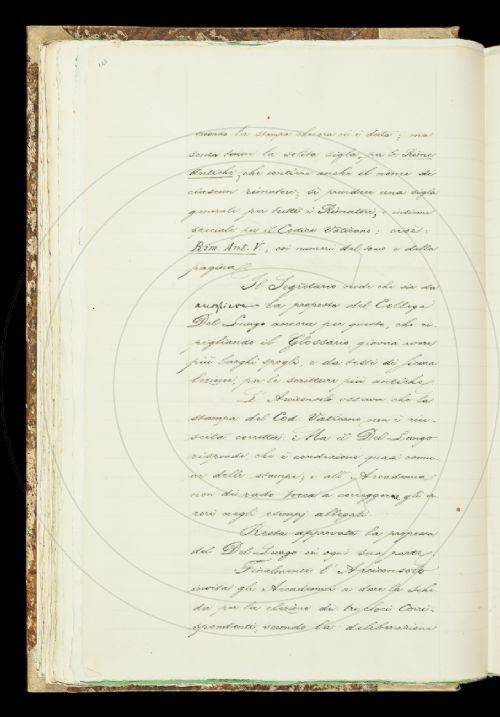 condo la stampa che ora ci è data; ma
senza tener la solita sigla, per le Rime
Antiche, che contiene anche il nome di
ciascun rimatore, si prendere una sigla
generale per tutti i Rimatori, e insieme
speciale per il Codice Vaticano; cioè:
Rim. Ant. V., coi numeri del tomo e della
pagina.
Il Segretario vede che sia da
accogliere la proposta del Collega
Del Lungo ancora per questo, che ri-
pigliando il Glossario gioverà avere
più larghi spogli, e da testi di sicura
lezione, per le scritture più antiche.
L'Arciconsolo osserva che la
stampa del Cod. Vaticano non è riu-
scita corretta. Ma il Del Lungo
risponde, che è condizione quasi comu-
ne delle stampe; e all'Accademia
non di rado tocca a correggere gli er-
rori negli esempj allegati.
Resta approvata la proposta
del Del Lungo in ogni sua parte.
Finalmente l'Arciconsolo
invita gli Accademici a dare la sche-
da per la elezione di tre Socj Corri-
spondenti, secondo la deliberazione